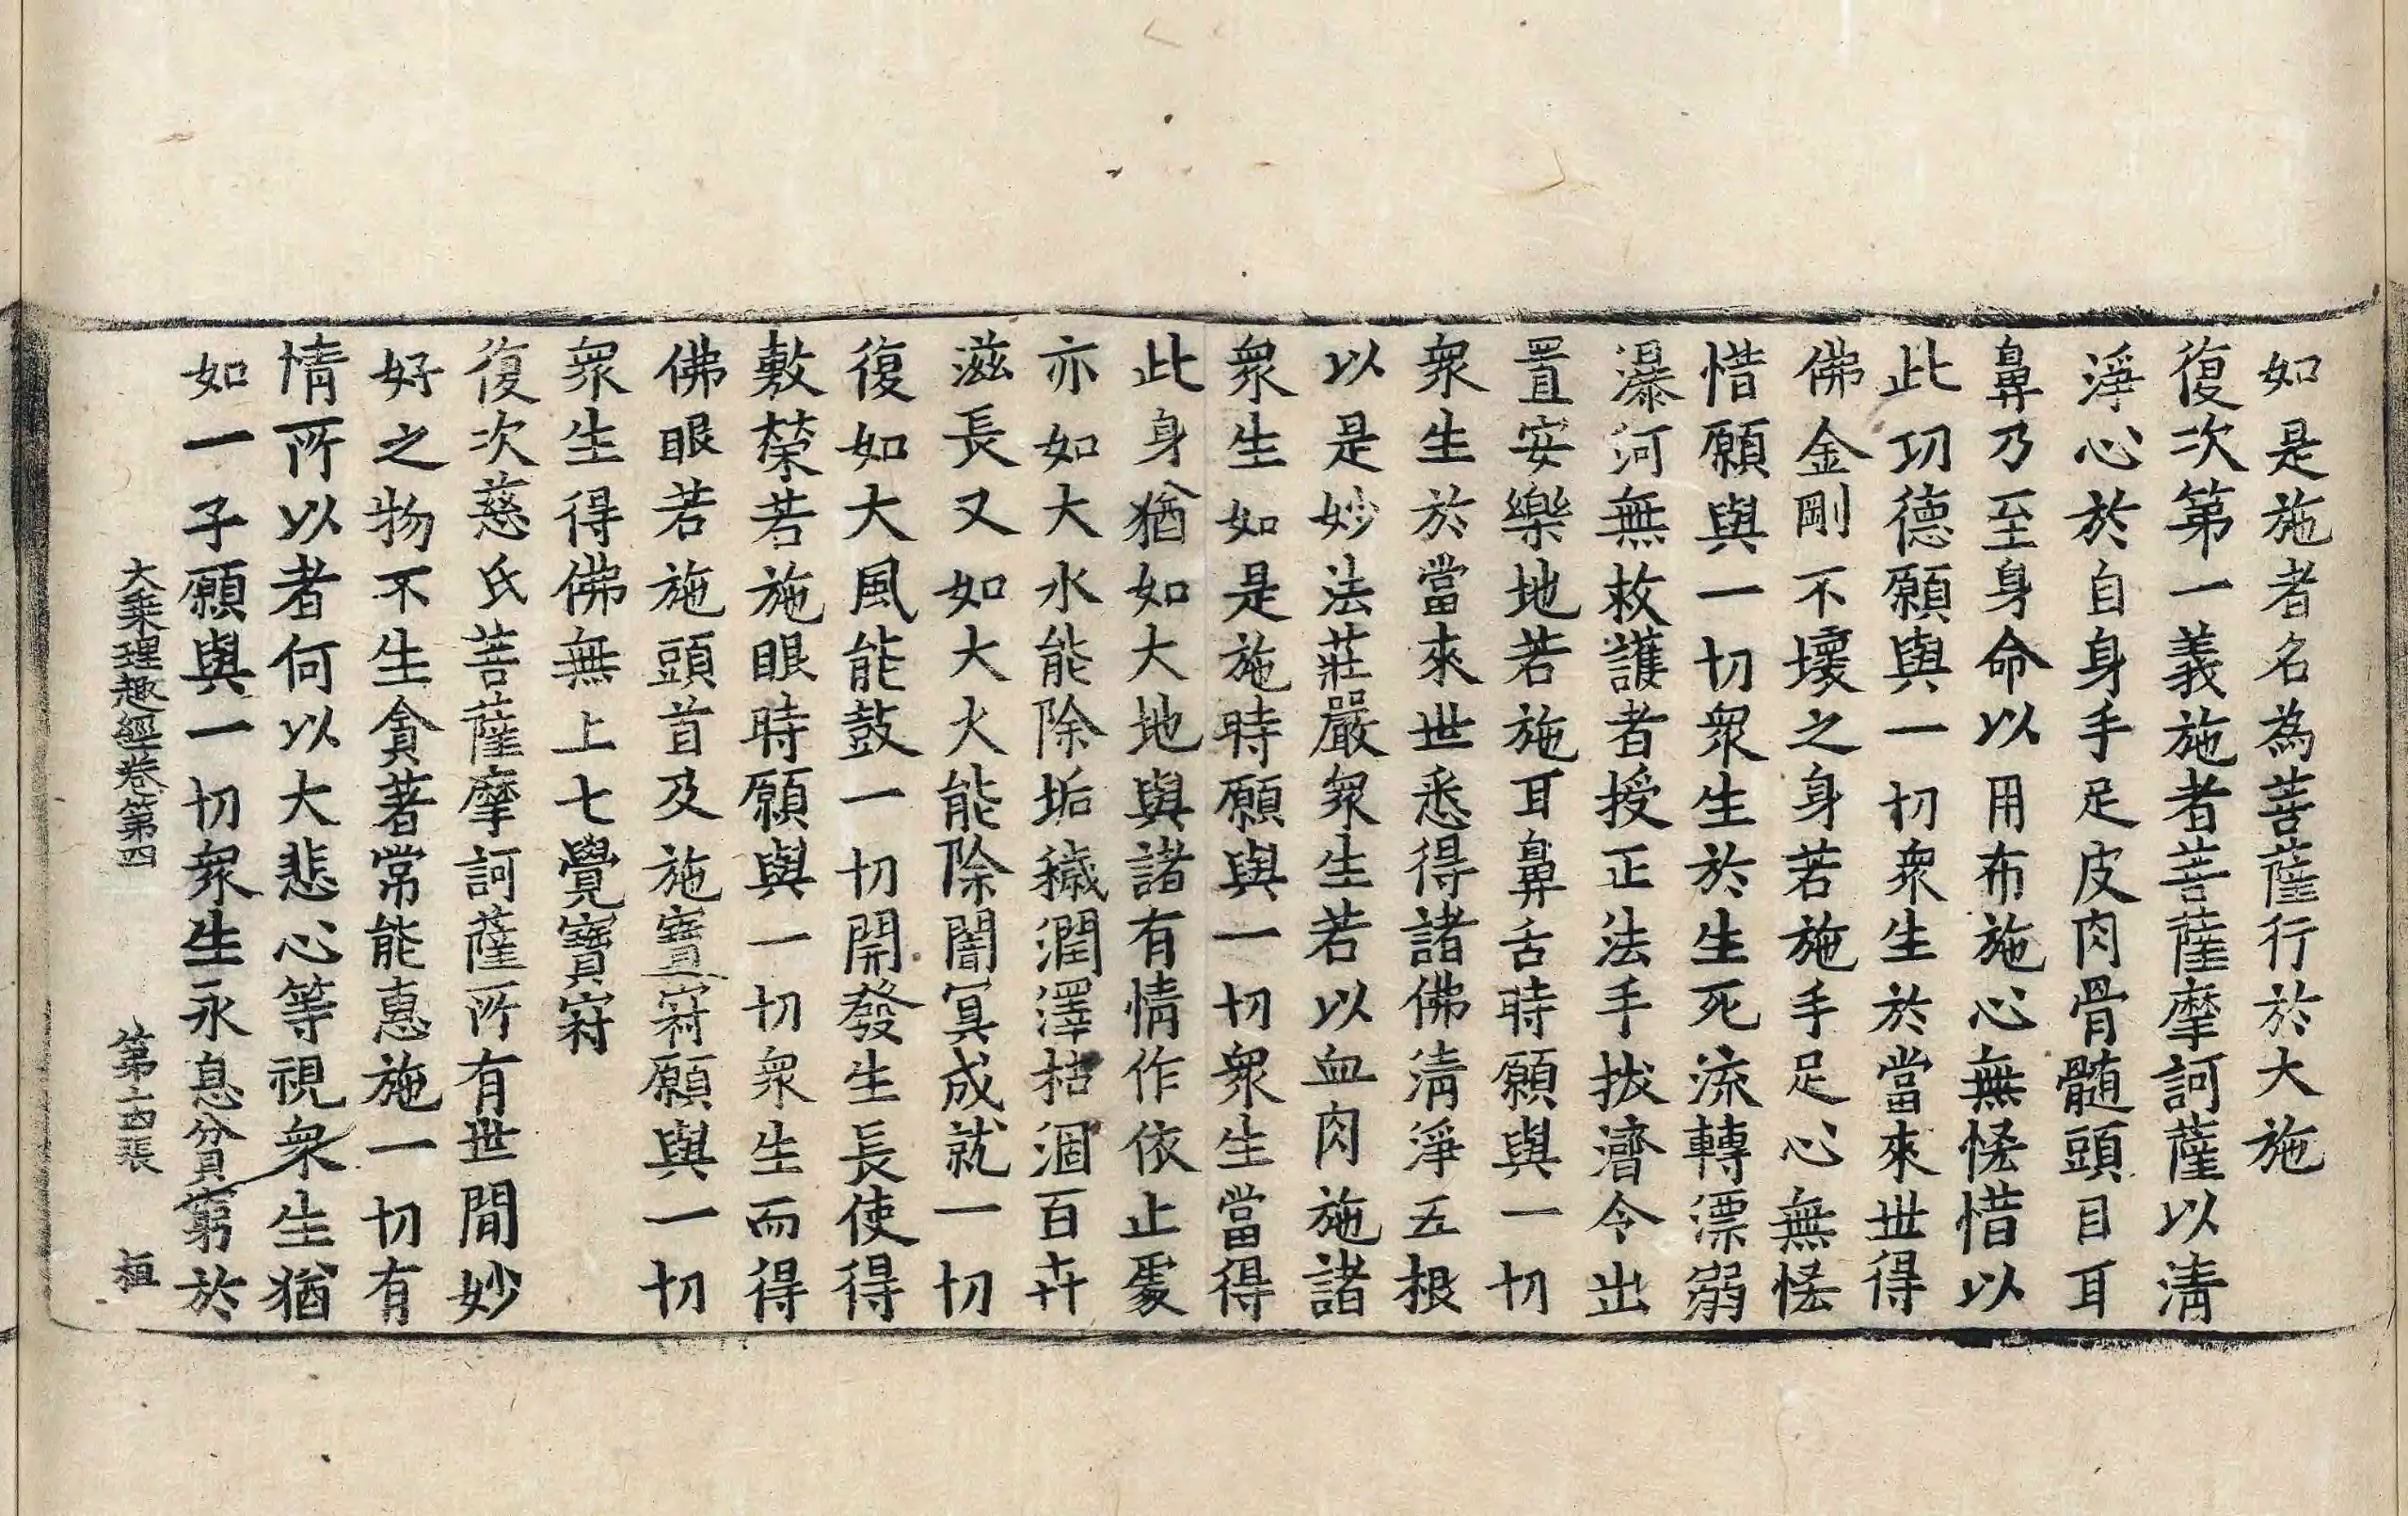 如是施者名為菩薩行於大施
復次第一義施者菩薩摩訶薩以清
淨心於自身手足皮肉骨髓頭目耳
鼻乃至身命以用布施心無悋惜以
此功德願與一切衆生於當來世得
佛金剛不壞之身若施手足心無悋
惜願與一切衆生於生死流轉漂溺
瀑河無救護者授正法手拔濟令出
置安樂地若施耳鼻舌時願與一切
衆生於當來世悉得諸佛清淨五根
以是妙法莊嚴衆生若以血肉施諸
衆生如是施時願與一切衆生當得
此身猶如大地與諸有情作依止處
亦如大水能除垢穢潤澤枯涸百卉
滋長又如大火能除闇冥成就一切
復如大風能鼓一切開發生長使得
敷榮若施眼時願與一切衆生而得
佛眼若施頭首及施寶𥦽願與一切
衆生得佛無上七覺寶𥦽
復次慈氏菩薩摩訶薩所有世間妙
好之物不生貪著常能惠施一切有
情所以者何以大悲心等視衆生猶
如一子願與一切衆生永息貧窮於
大乘理趣經卷第四 第二十四張 桓